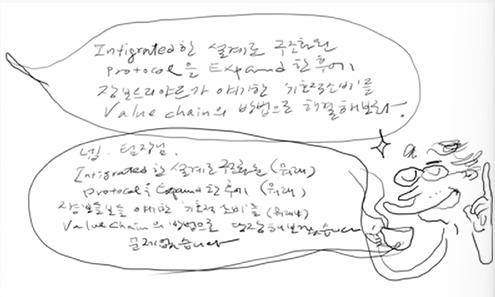 Intigrated한 설계로 구조화된
protocol을 Expand한 후에
장보드리야르가 야기한 '기호적소비'를
Value chain의 방법으로 해결해보라.
넵. 팀장님.
Intigrated한 설계로 구조화된 (뭐래)
protocol을 Expand한 후에 (뭐래)
야기한 '기호적 소비'를
Value chain의 방법으로 해보겠습니다
문제없습니다